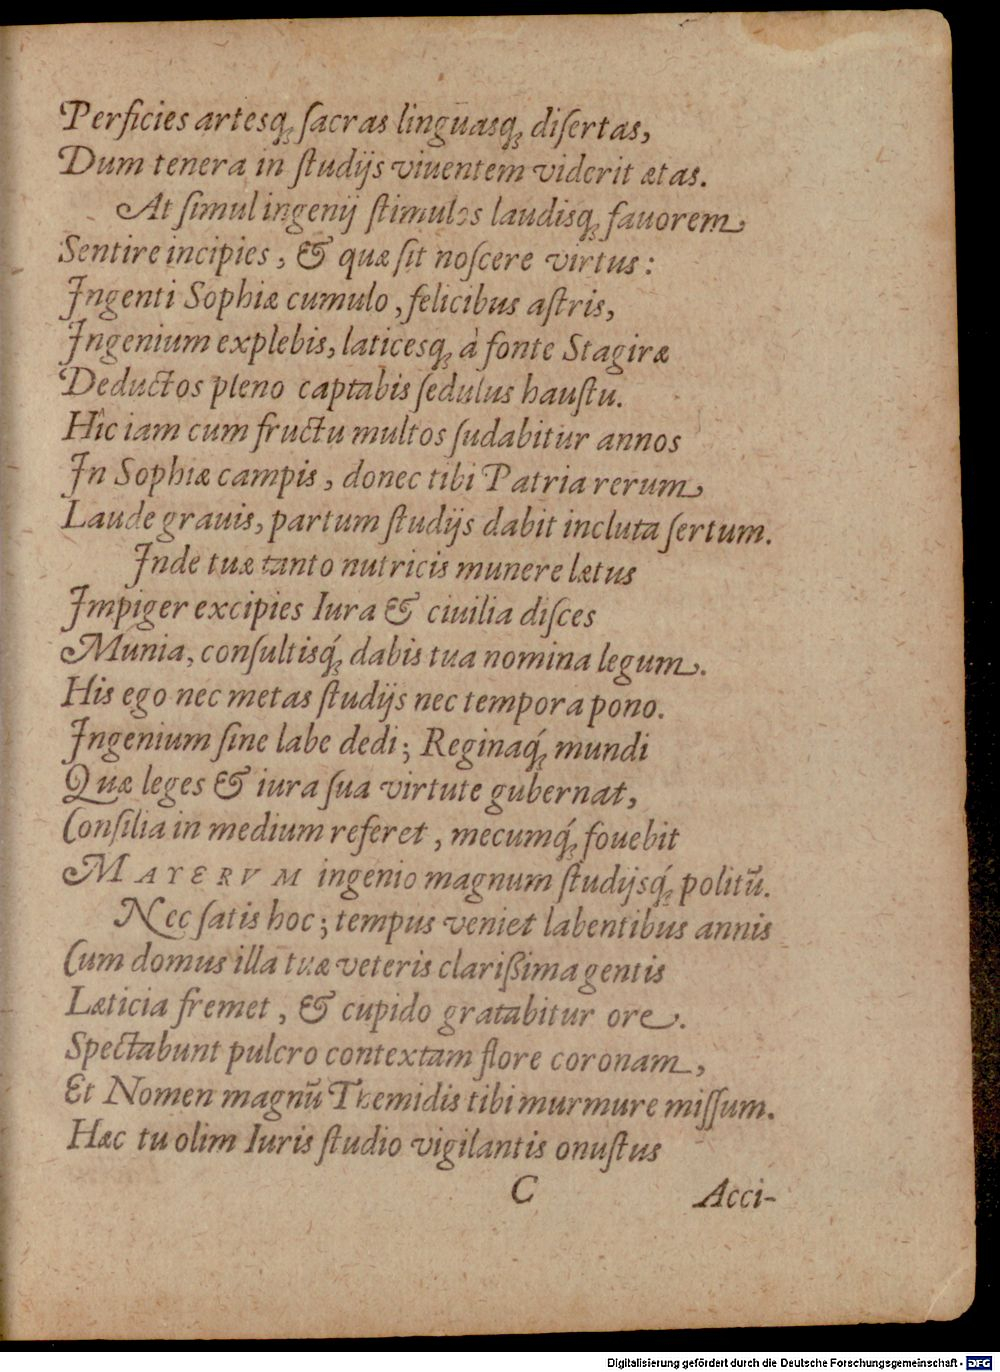 Perficies artesq; ſacras linguasq; diſertas,
Dum tenera in ſtudijs viuentem viderit ætas.
At ſimul ingenij ſtimulos laudisq; fauorem
Sentire incipies, & quæ ſit noſcere virtus:
Ingenti Sophiæ cumulo, felicibus aſtris,
Ingenium explebis, laticesq; à fonte Stagiræ
Deductos pleno captabis ſedulus hauſtu.
Hîc iam cum fructu multos ſudabitur annos
In Sophiæ campis, donec tibi Patria rerum,
Laude grauis, partum ſtudijs dabit incluta ſertum.
Inde tuæ tanto nutricis munere lætus
Impiger excipies Iura & ciuilia diſces
Munia, conſultisq́; dabis tua nomina legum.
His ego nec metas ſtudijs nec tempora pono.
Ingenium ſine labe dedi; Reginaq́; mundi
Quæ leges & iura ſua virtute gubernat,
Conſilia in medium referet, mecumq́; fouebit
MAYERVM ingenio magnum ſtudijsq́; politū.
Nec ſatis hoc; tempus veniet labentibus annis
Cum domus illa tuæ veteris clarißima gentis
Læticia fremet, & cupido gratabitur ore.
Spectabunt pulcro contextam flore coronam,
Et Nomen magnū Themidis tibi murmure miſſum.
Hæc tu olim Iuris ſtudio vigilantis onuſtus
C Acci-
Digitalisierung gefördert durch die Deutsche Forschungsgemeinschaft - DFG